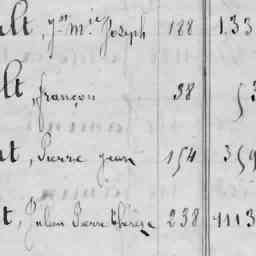 alt, Jn Mie Joseph 188 133
lt, françois 38 53
at, Pierre Jean 154 359
t, Julien Pierre Thérèse 238 1113